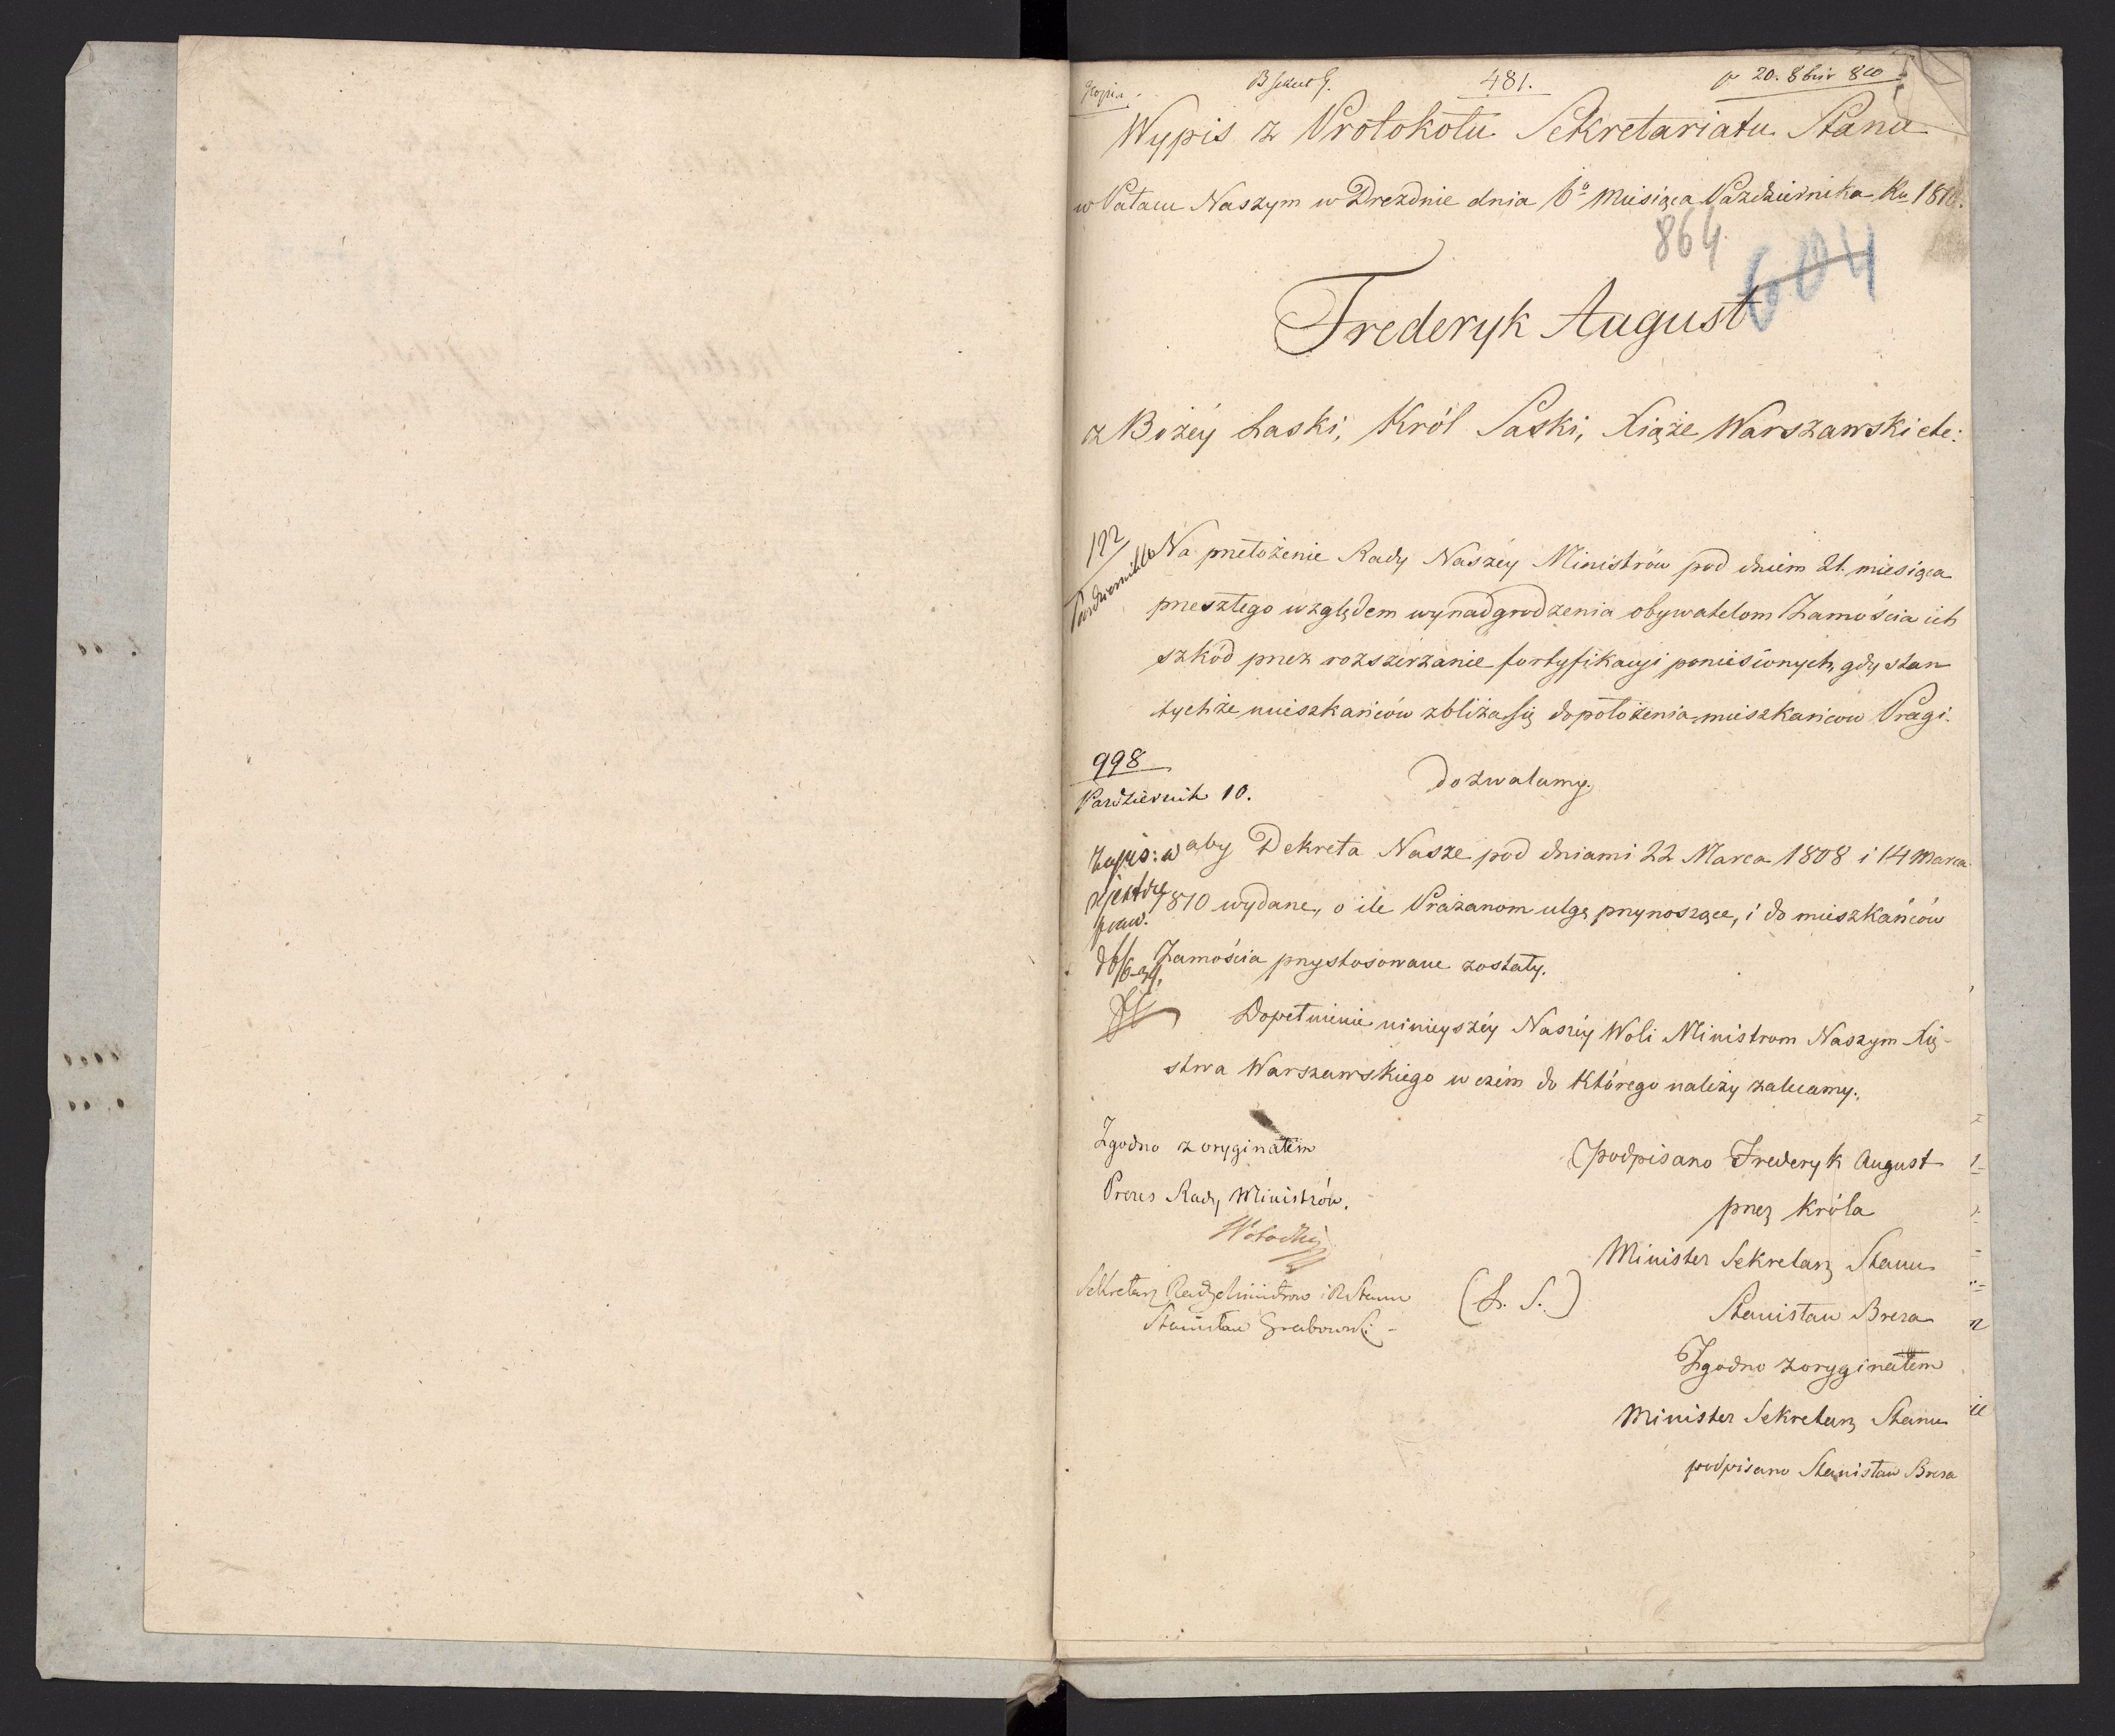 Kopia.
481.
20. 8bris 810
Wypis z Protokołu Sekretariatu Stanu
w Pałacu Naszym w Dreznie dnia 6° Miesiąca Października Ru 1810.
864
604
Frederyk August
z Bożéy Łaski, Król Saski, Xiąże Warszawski etc:
122
Października
Na przełożenie Rady Naszéy Ministrów pod dniem 21. miesiąca
przeszłego względem wynadgrodzenia obywatelom Zamościa ich
szkód przez rozszerzanie fortyfikacyi poniesionych, gdy stan
tychże mieszkańców zbliża się do położenia mieszkańców Pragi.
998
Październik 10.
dozwalamy.
Zapis: w
rejestrze
praw.
aby Dekreta Nasze pod dniami 22 Marca 1808 i 14 Marca
1810 wydane, o ile Prażanom ulgę przynoszące, i do mieszkańców
Zamościa przystosowane zostały.
Dopełnienie ninieyszéy Naszéy Woli Ministrom Naszym Xię-
stwa Warszawskiego w czém do którego należy zalecamy.
Zgodno z oryginałem
Prezes Rady Ministrów.
Sekretarz Rady Ministrów i R Stanu
Stanisław Grabowski
(podpisano Frederyk August
przez Króla
Minister Sekretarz Stanu
(L. S.)
Stanisław Breza
Zgodno z oryginałem
Minister Sekretarz Stanu
podpisano Stanisław Breza